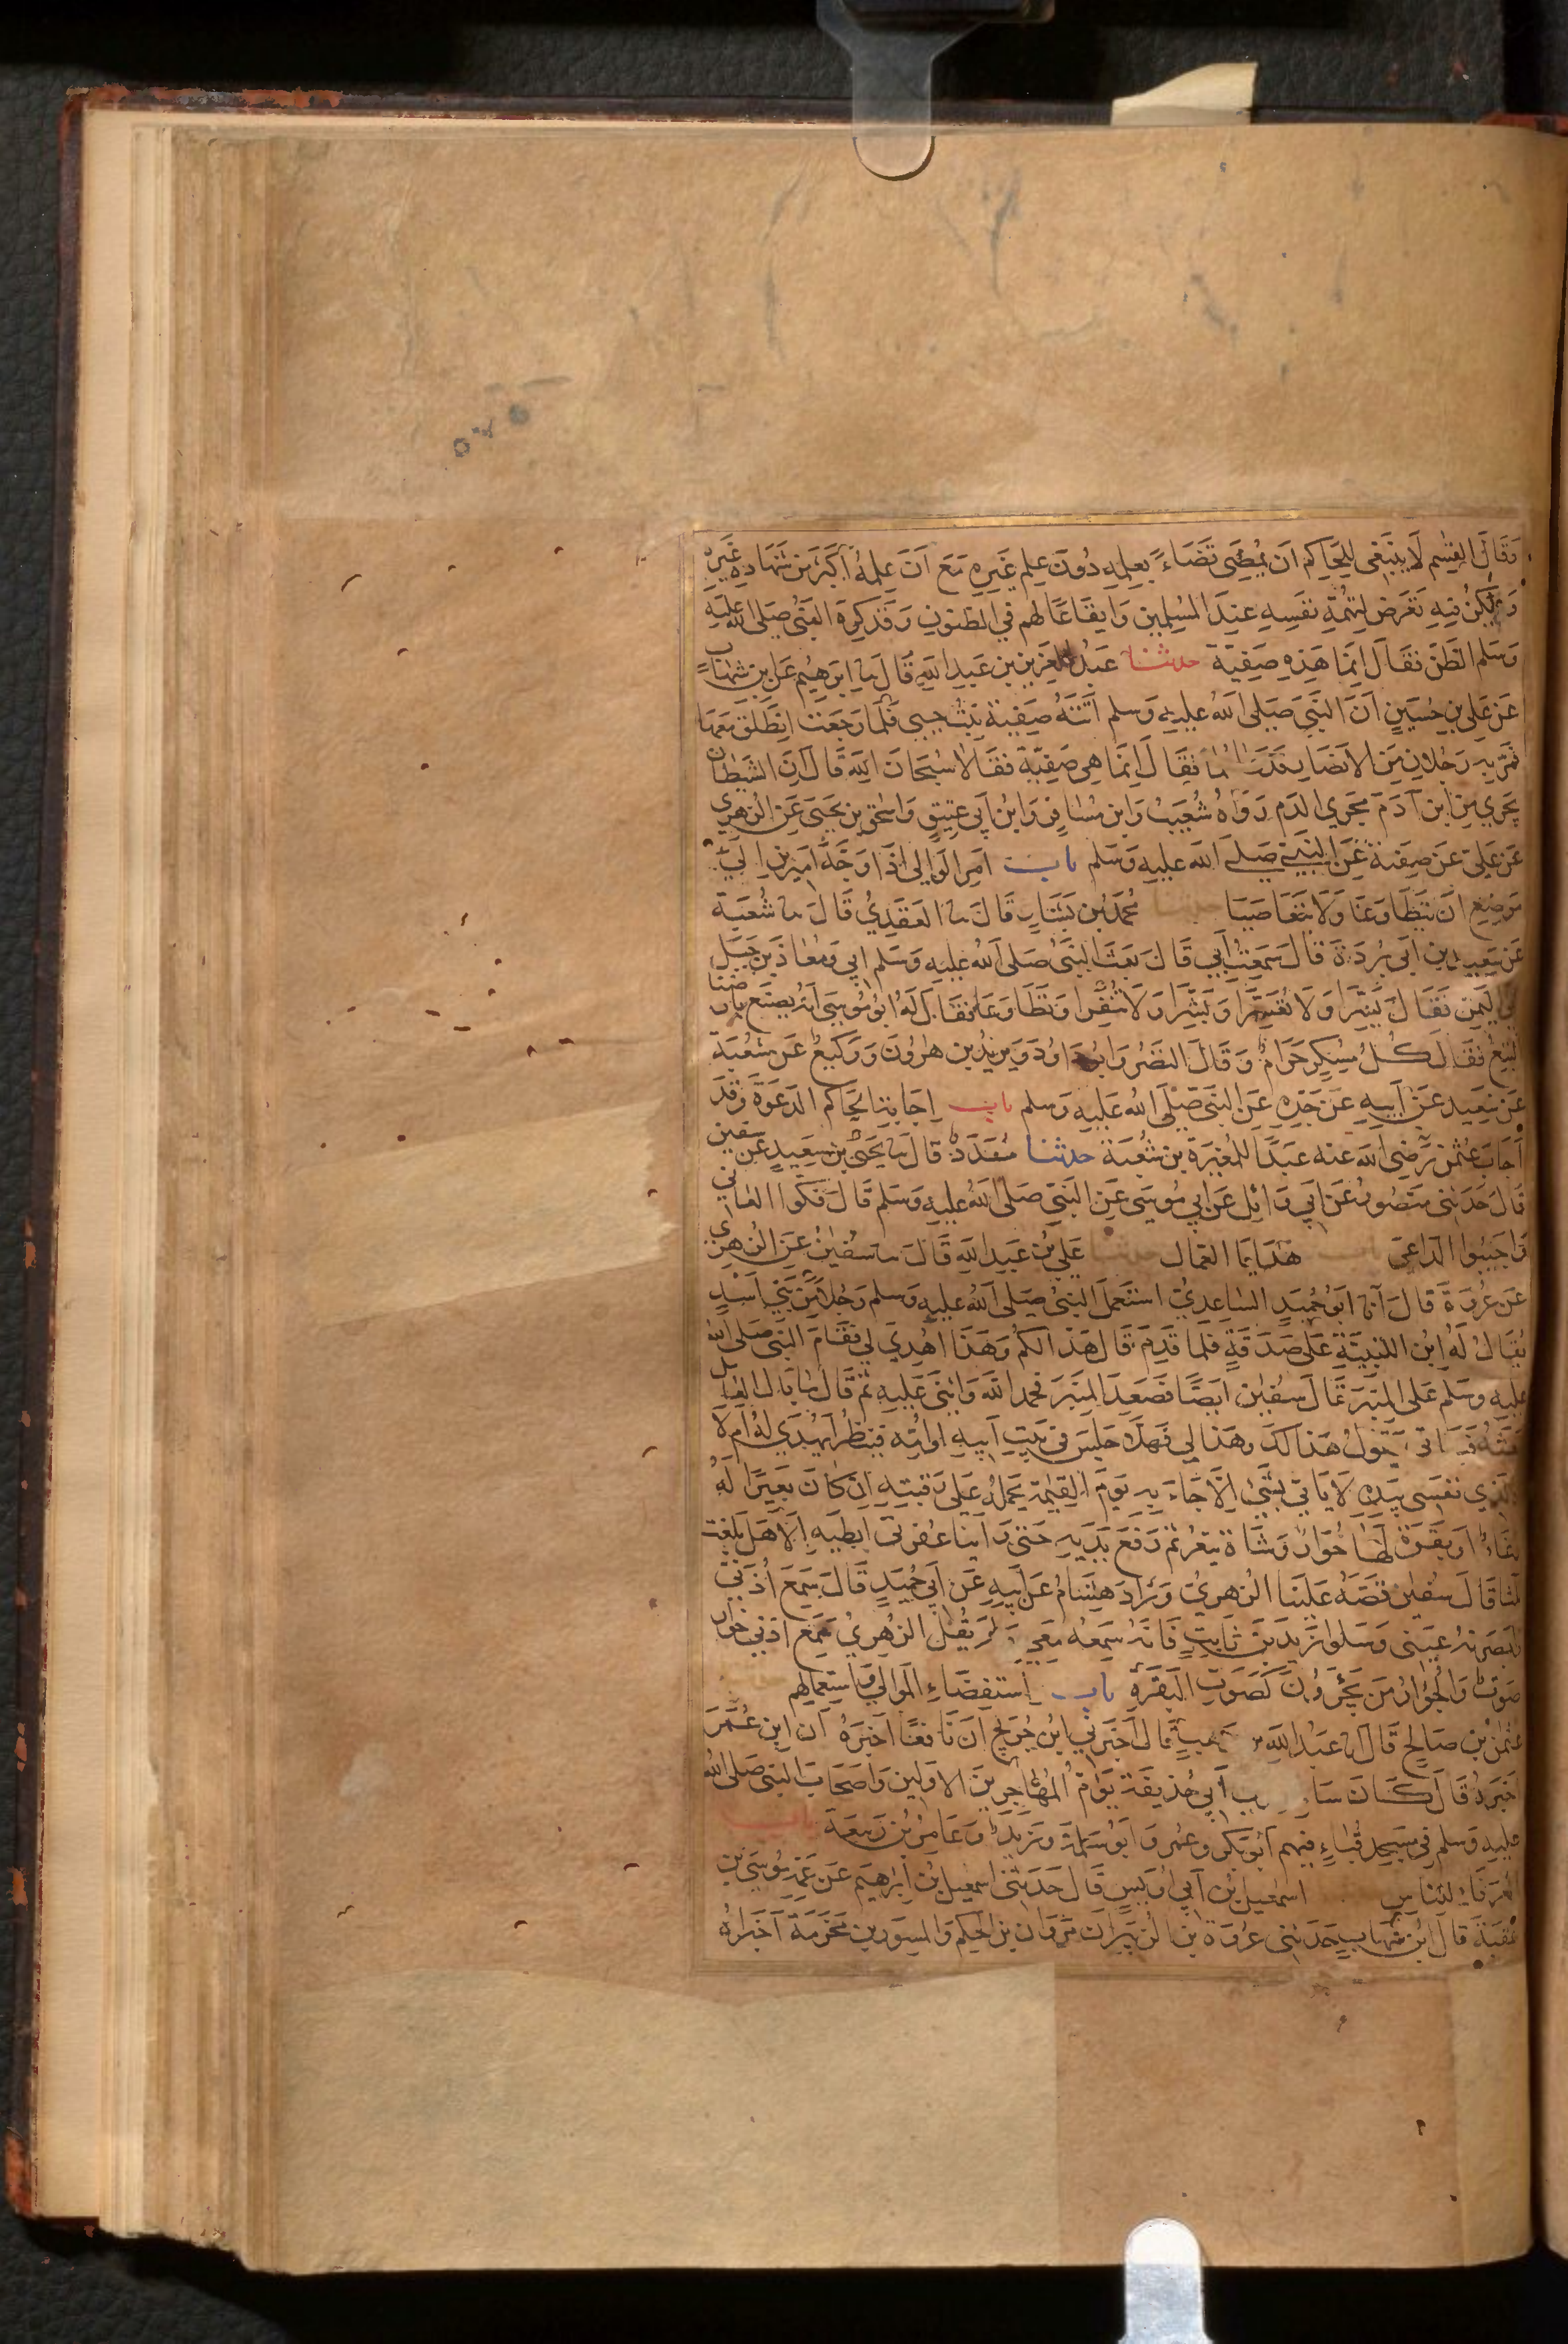 وَقَالَ القٰسِم لَا يَنبَغِي لِلحَاكِم اَن يُمضِيَ قَضَاءً بِعِلمِهِ دُونَ عِلمِ غَيرِهِ مَعَ اَنَ عِلمَهُ اَكثَرَ مِن شَهَادةِ غَيرِه
وَلكِنَّ فِيهِ تَعَرُضَ لِتُهمَةِ نَفسِهِ عِندَ المُسلِمِينَ وَايقَاعًا لَهم في الظنونِ وَقَد كرِهَ النَبيُ صَلى الله عَلَيه
وَسَلم الظَنَ فَقَالَ اِنَمَا هَذِهِ صَفِيَة حدثنا عَبدُ العَزِيزِ بن عَبدِ اللهِ قَالَ نا ابرَهِيم عَن ابنِ شهَابٍ
عَن عَلي بنِ حُسَينٍ اَنَ النَبيَ صَلى اللهُ عَليهِ وَسلم اَتَتهُ صَفِيَة بِنتُ حيي فَلَمَا رَجَعَت اِنطَلَقَ مَعَهَا
فَمَرَ بِهِ رَجُلانِ مِنَ الانصَارِ فَدَعَاهُمَا فَقَالَ اِنمَا هِيَ صَفِيَة فقَالَا سُبحَانَ اللهِ قَالَ اِنَ الشَيطانَ
يَجرِي مِن ابنِ آدَمَ مَجرَي الدَم رَوَاهُ شُعَيبُ وَابن مُسَافِرٍ وَابنُ اَبي عَتِيقٍ وَاسحٰق بن يَحيَى عَن الزهرِي
عَن عَلي عَن صَفِيَة عَنِ النَبيِ صَلى الله عليهِ وَسَلم باب اَمرِ الوَالي اذَا وَجَّهَ اَمِيرَينِ اِلي
مَوضِعٍ اَن يَتَطَاوَعَا وَلَا يَتَعَاصَيَا حدثنا مُحمدُ بن بَشَارٍ قَالَ نا العَقَدِيُ قَالَ نا شُعبَة
عَن سَعِيدِ بنِ اَبي بُردَة قَالَ سَمِعتُ اَبي قَالَ بَعَثَ النَبيُ صَلى اللهُ عَلَيهِ وَسَلم ابي وَمُعَاذَ بنَ جَبَل
الي اليَمنِ فَقَالَ يَسِّرَا وَلَا تُعَسِّرَا وَبَشِّرَا وَلَا تُنَفِّرا وَتَطَاوَعَا فَقَالَ لَهُ ابُو مُوسَى اَنَهُ يُصنَع بِارضِنَا
البِتعُ فَقَالَ كُلُ مُسكِرٍ حَرَامٌ وَقَالَ النَضرُ وَابُو دَاوُدَ وَيَزِيدُ بن هٰرُونَ وَوَكيعٌ عَن شُعبَة
عَن سَعِيد عَن اَبِيهِ عَن جَدِهِ عَنِ النَبيِ صَلَى الله عَلَيهِ وَسلم باب اِجَابَةِ الحَاكم الدَعوَةَ وَقَد
اَجَابَ عُثمٰن رَضي الله عَنه عَبدًا لِلمُغِيرَة بن شُعبَة حدثنا مُسَدَدٌ قَالَ نا يَحيَى بن سَعِيدٍ عَن سفين
قَالَ حَدثَني مَنصُورٌ عَن اَبي وَائِلٍ عَن اَبي مُوسَى عَنِ النَبيِ صَلَى اللهُ عَليهِ وَسَلم قَالَ فُكُوا العَاني
وَاَجِيبُوا الدَاعيَ باب هَدَايَا العُمال حدثنا عَلي بن عَبدِ اللهِ قَالَ نا سُفيٰنُ عَنِ الزهرِي
عَن عُروَة قَالَ انا ابُو حُمَيدٍ السَاعِدِيُ استَعمَلَ النَبيُ صَلى اللهُ عَليهِ وَسلم رَجُلاً مِن بَني اَسَدٍ
يُقَالُ لَهُ ابنُ اللتبِيَّةِ عَلَى صَدَقَةٍ فَلَمَا قَدِمَ قَالَ هَذَا لكُم وَهَذَا اُهدِيَ لي فَقَامَ النَبي صَلى الله
عَليهِ وسَلم عَلى المِنبَرِ قَالَ سُفيٰن ايضًا فَصَعِدَ المِنبَرَ فحَمدَ اللهَ وَاثنَى عَلَيهِ ثم قَالَ مَا بَالُ العَامِل
نَبعَثُهُ فَيَاتي يَقُولُ هَذَا لَكَ وهَذَا لي فَهَلا جَلَسَ في بَيتِ اَبِيهِ اوامِّه فيَنظُر اَيُهدَي لَهُ اَم لَا
وَالَذِي نفَسي بيَدِهِ لَا يَاتي بِشَيءٍ اِلَّا جَاءَ بِهِ يَومَ القِيٰمَة يَحمِلُهُ عَلَى رَقبَتِهِ اِن كَانَ بَعِيرًا لَهُ
رُغَاءٌ اَو بَقَرَةً لَهَا خُوَارٌ وَشَاة تَيعَرُ ثم رَفَعَ يَدَيهِ حَتى رَاَينَا عفرَتي اِبطَيهِ اَلَا هَل بَلَغت
ثَلَثا قَالَ سُفيٰن قَصَهُ عَلَينَا الزُهرِيُ وَزادَ هِشَامٌ عَن اَبِيهِ عَن اَبي حُمَيدٍ قَالَ سَمِعَ اُذُنَيَّ
وَاَبصَرتهُ عَيني وَسَلوا زَيدَ بنَ ثَابِتٍ فَانَهُ سَمِعَهُ مَعِي وَلَم يَقُل الزُهرِيُ سَمِعَ اُذُني خُوار
صَوتٌ وَالجُؤارُ مِن تَجئَرُونَ كَصَوتِ البَقَرَةِ باب اِستِقضَاءِ المَوَالي وَاستِعمَالِهم
عُثمٰنُ بن صَالِحٍ قَالَ نا عَبدُ اللهِ بن وَهبٍ قَالَ اَخبَرَني ابنُ جُرَيجٍ اَنَ نَافِعًا اَخبَرَهُ اَن ابن عُمَرَ
اَخبَرَهُ قَالَ كَانَ سَا ابي حُذيفَة يَؤُمُ المُهٰاجِرِينَ الاولِين وَاَصحَابَ النَبي صَلى الله
عَليهِ وسلم في مَسجِد قُبَاءٍ فِيهِم اَبُو بَكرٍ وعُمر وَاَبُو سَلمَة وَزَيدٌ وَعَامِرُ بن رَبِيعَة باب
العُرَفَاءِ لِلنَاس اسمعيلُ بن اَبي اُوَيسٍ قَالَ حَدَثَني اسمعيل بن اِبرٰهِيم عَن عَمِهِ مُوسَى بن
عُقبَةَ قَالَ ابن شِهَابٍ حَدَثَني عُروَة بن الزُبَيرِ اَن مَروَان بن الحَكم وَالمِسوَر بن مَخرَمَة اَخبَراهُ